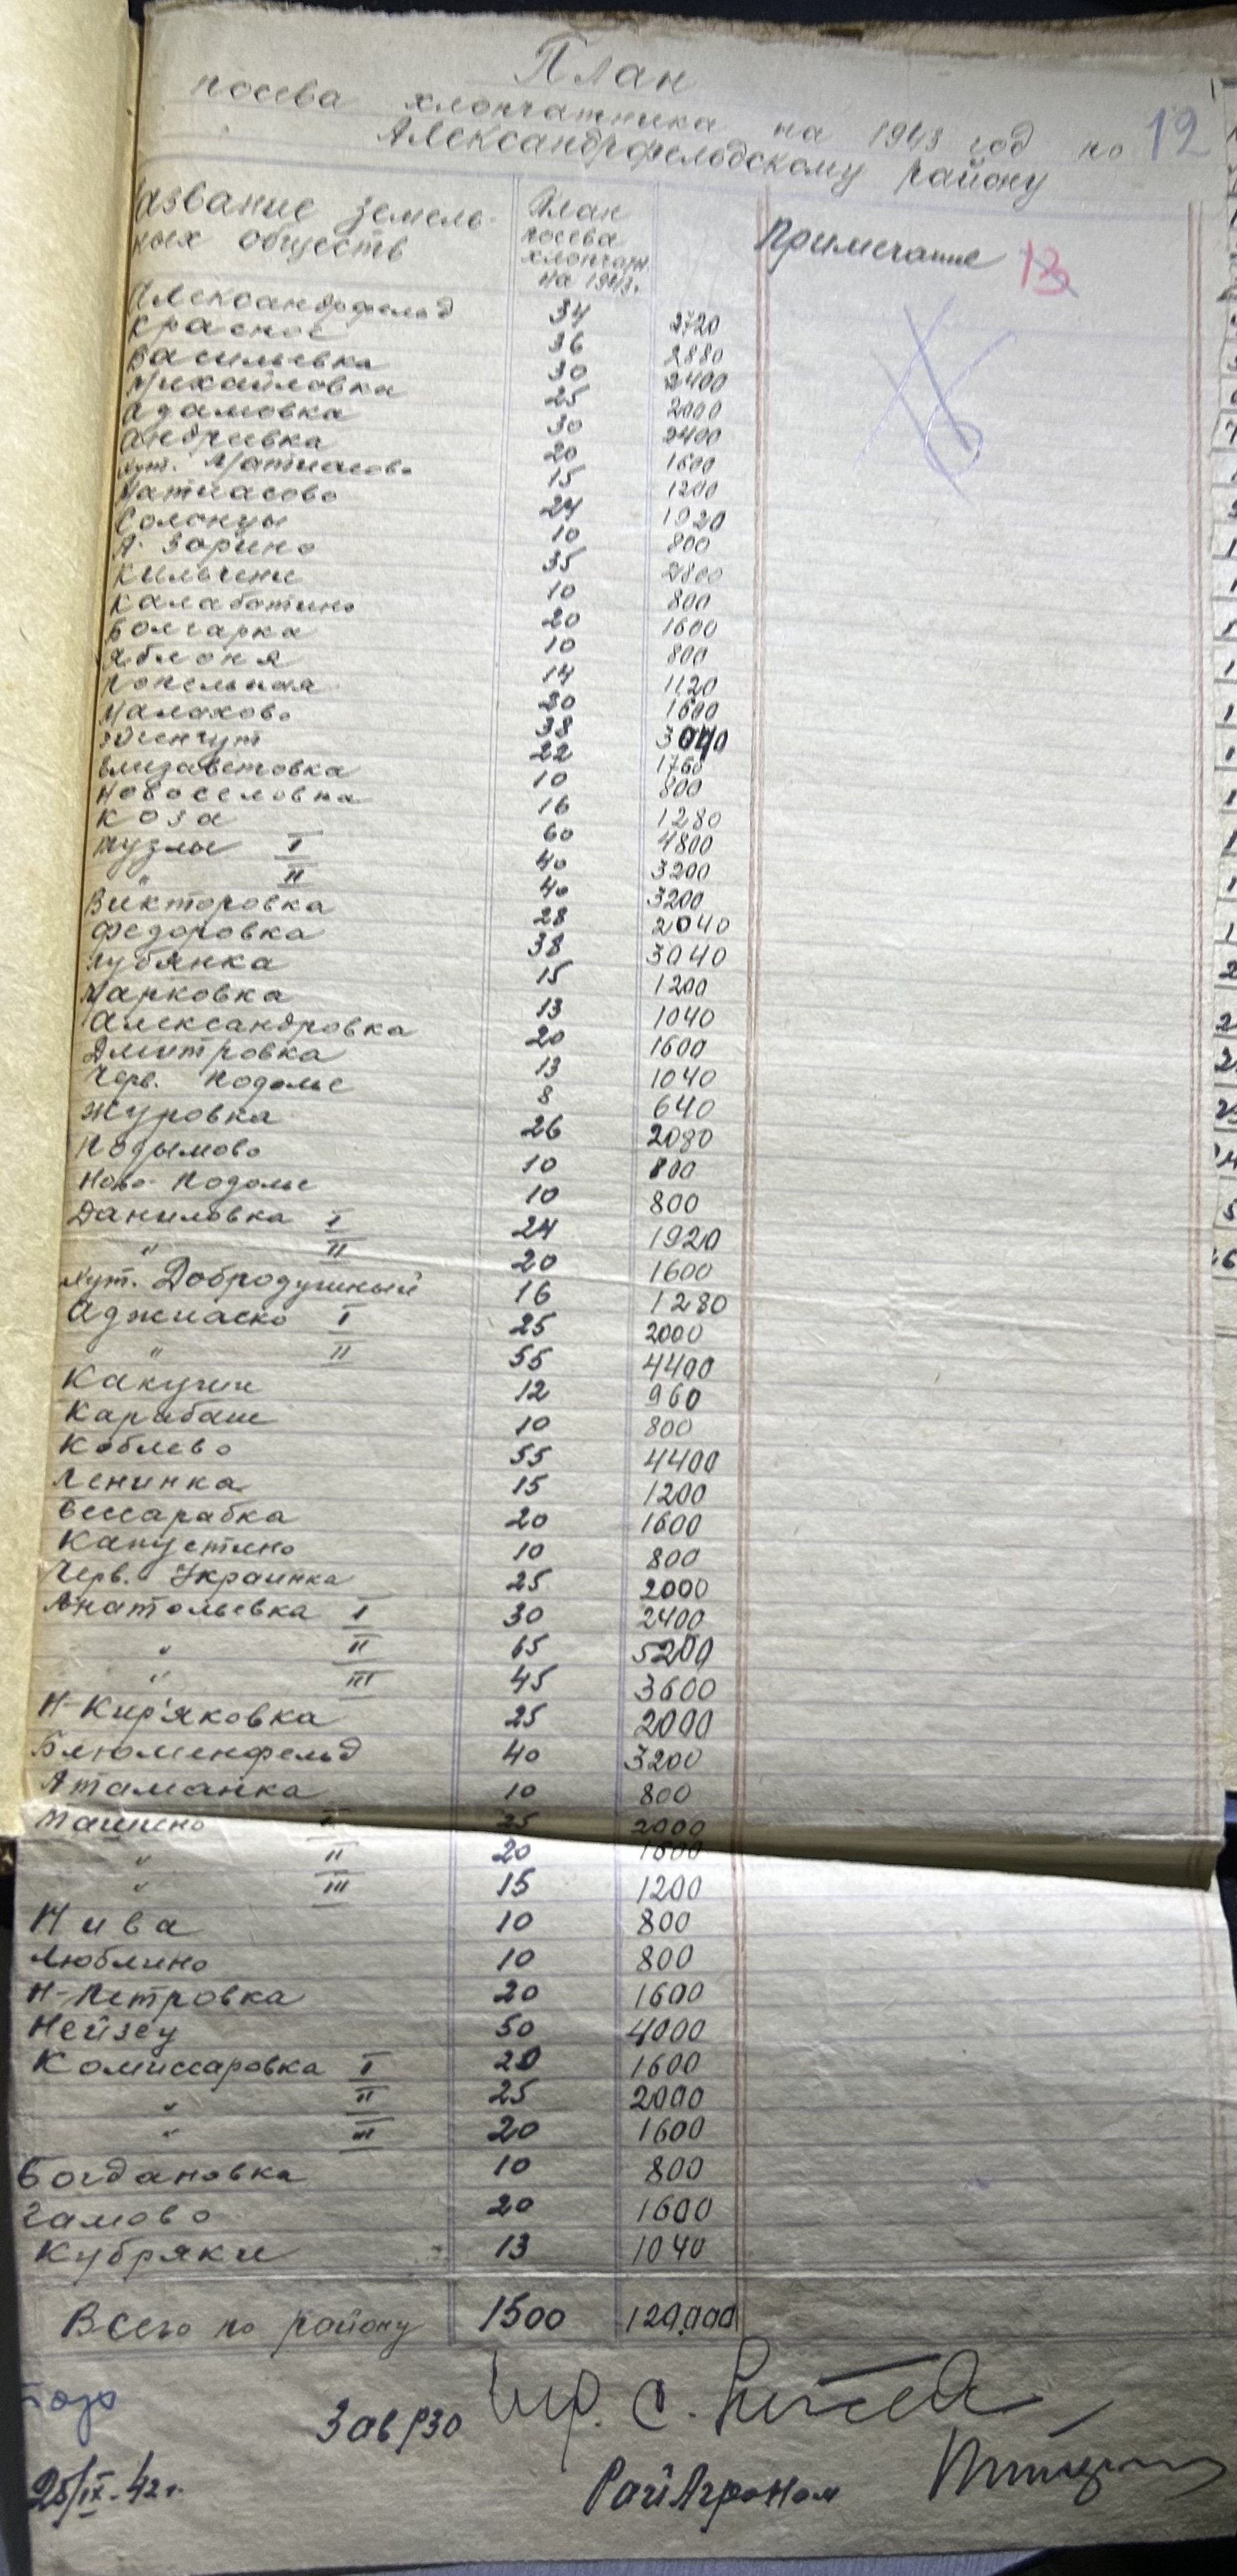 План
посева хлопчатника на 1943 год по 12
Александрфельдскому району
азвание земель- План
ных обществ посева Примечание 13
хлопчатн.
на 1943г.
Александрфельд 34 2720
Красное 36 2880
Васильевка 30 2400
Михайловка 25 2000
Адамовка 30 2400
Андреевка 20 1600
хут. Матиасово 15 1200
Матиасово 24 1920
Солонцы 10 800
А-Зорино 35 2800
Кильчени 10 800
Калабатино 20 1600
Болгарка 10 800
Яблоня 14 1120
Копельная 20 1600
Малахово 38 3040
22 1760
Елизаветовка 10 800
Новоселовка 16 1280
Коза 60 4800
Тузлы I 40 3200
" II 40 3200
Викторовка 28 2040
Федоровка 38 3040
Лубянка 15 1200
Марковка 13 1040
Александровка 20 1600
Дмитровка 13 1040
Черв. Подолье 8 640
Журовка 26 2080
Подымово 10 800
Ново-Подолье 10 800
Даниловка I 24 1920
" II 20 1600
Хут. Добродушный 16 1280
Аджиаско I 25 2000
" II 55 4400
Какучи 12 960
Карабаш 10 800
Коблево 55 4400
Ленинка 15 1200
Бессарабка 20 1600
Капустино 10 800
Черв. Украинка 25 2000
Анатольевка I 30 2400
" II 65 5200
" III 45 3600
Н-Кир'яковка 25 2000
Блюменфельд 40 3200
Атаманка 10 800
Ташино I 25 2000
" II 20 1600
" III 15 1200
Нива 10 800
Люблино 10 800
Н-Петровка 20 1600
Нейзец 50 4000
Комиссаровка I 20 1600
" II 25 2000
" III 20 1600
Богдановка 10 800
Гамово 20 1600
Кубряки 13 1040
Всего по району 1500 120.000
Зав РЗО
25/IX-42г. РайАгроном